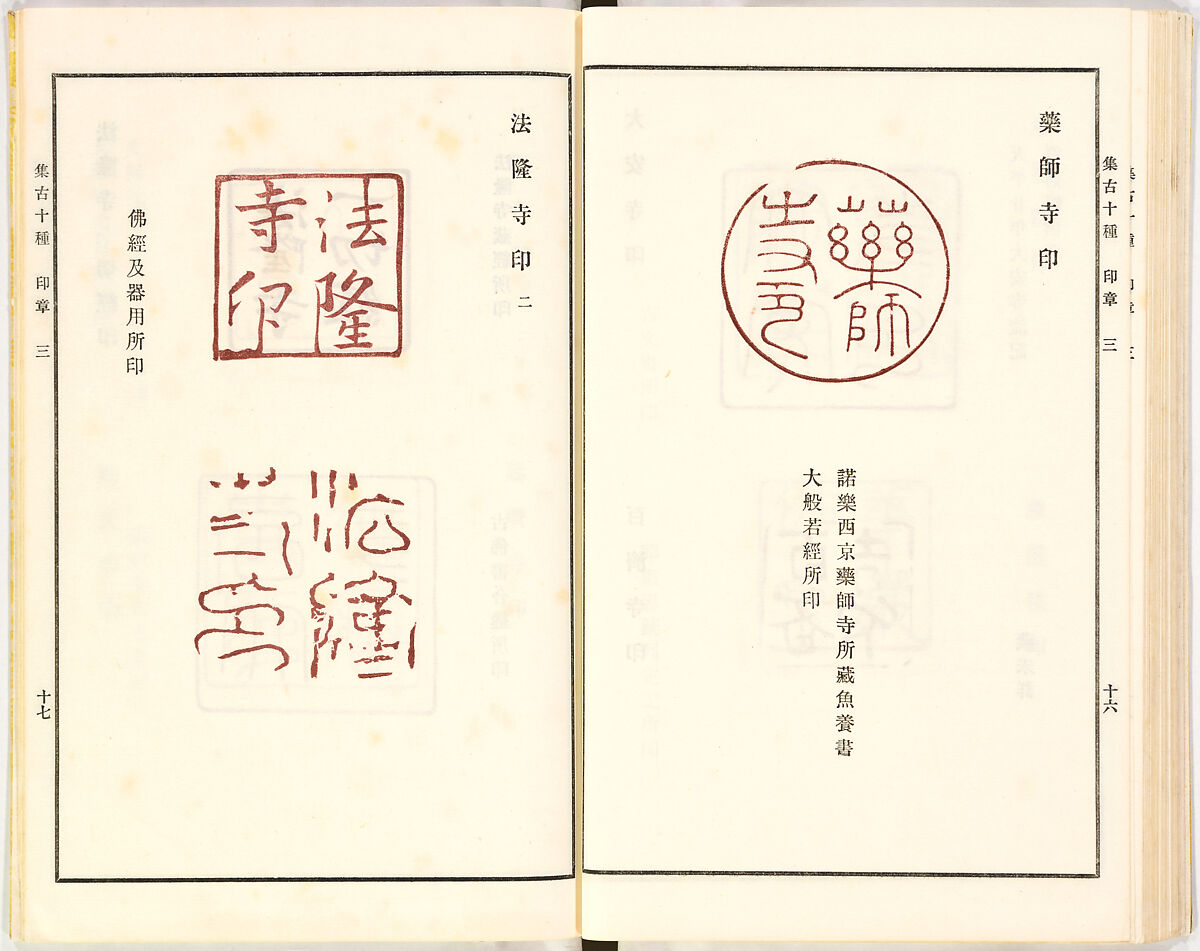 集古十種 印章 三
十六
藥師寺印
藥師寺印
諾樂西京藥師寺所藏魚養書
大般若經所印
法隆寺印 二
法隆寺印
法隆寺印
佛經及器用所印
集古十種 印章 三
十七